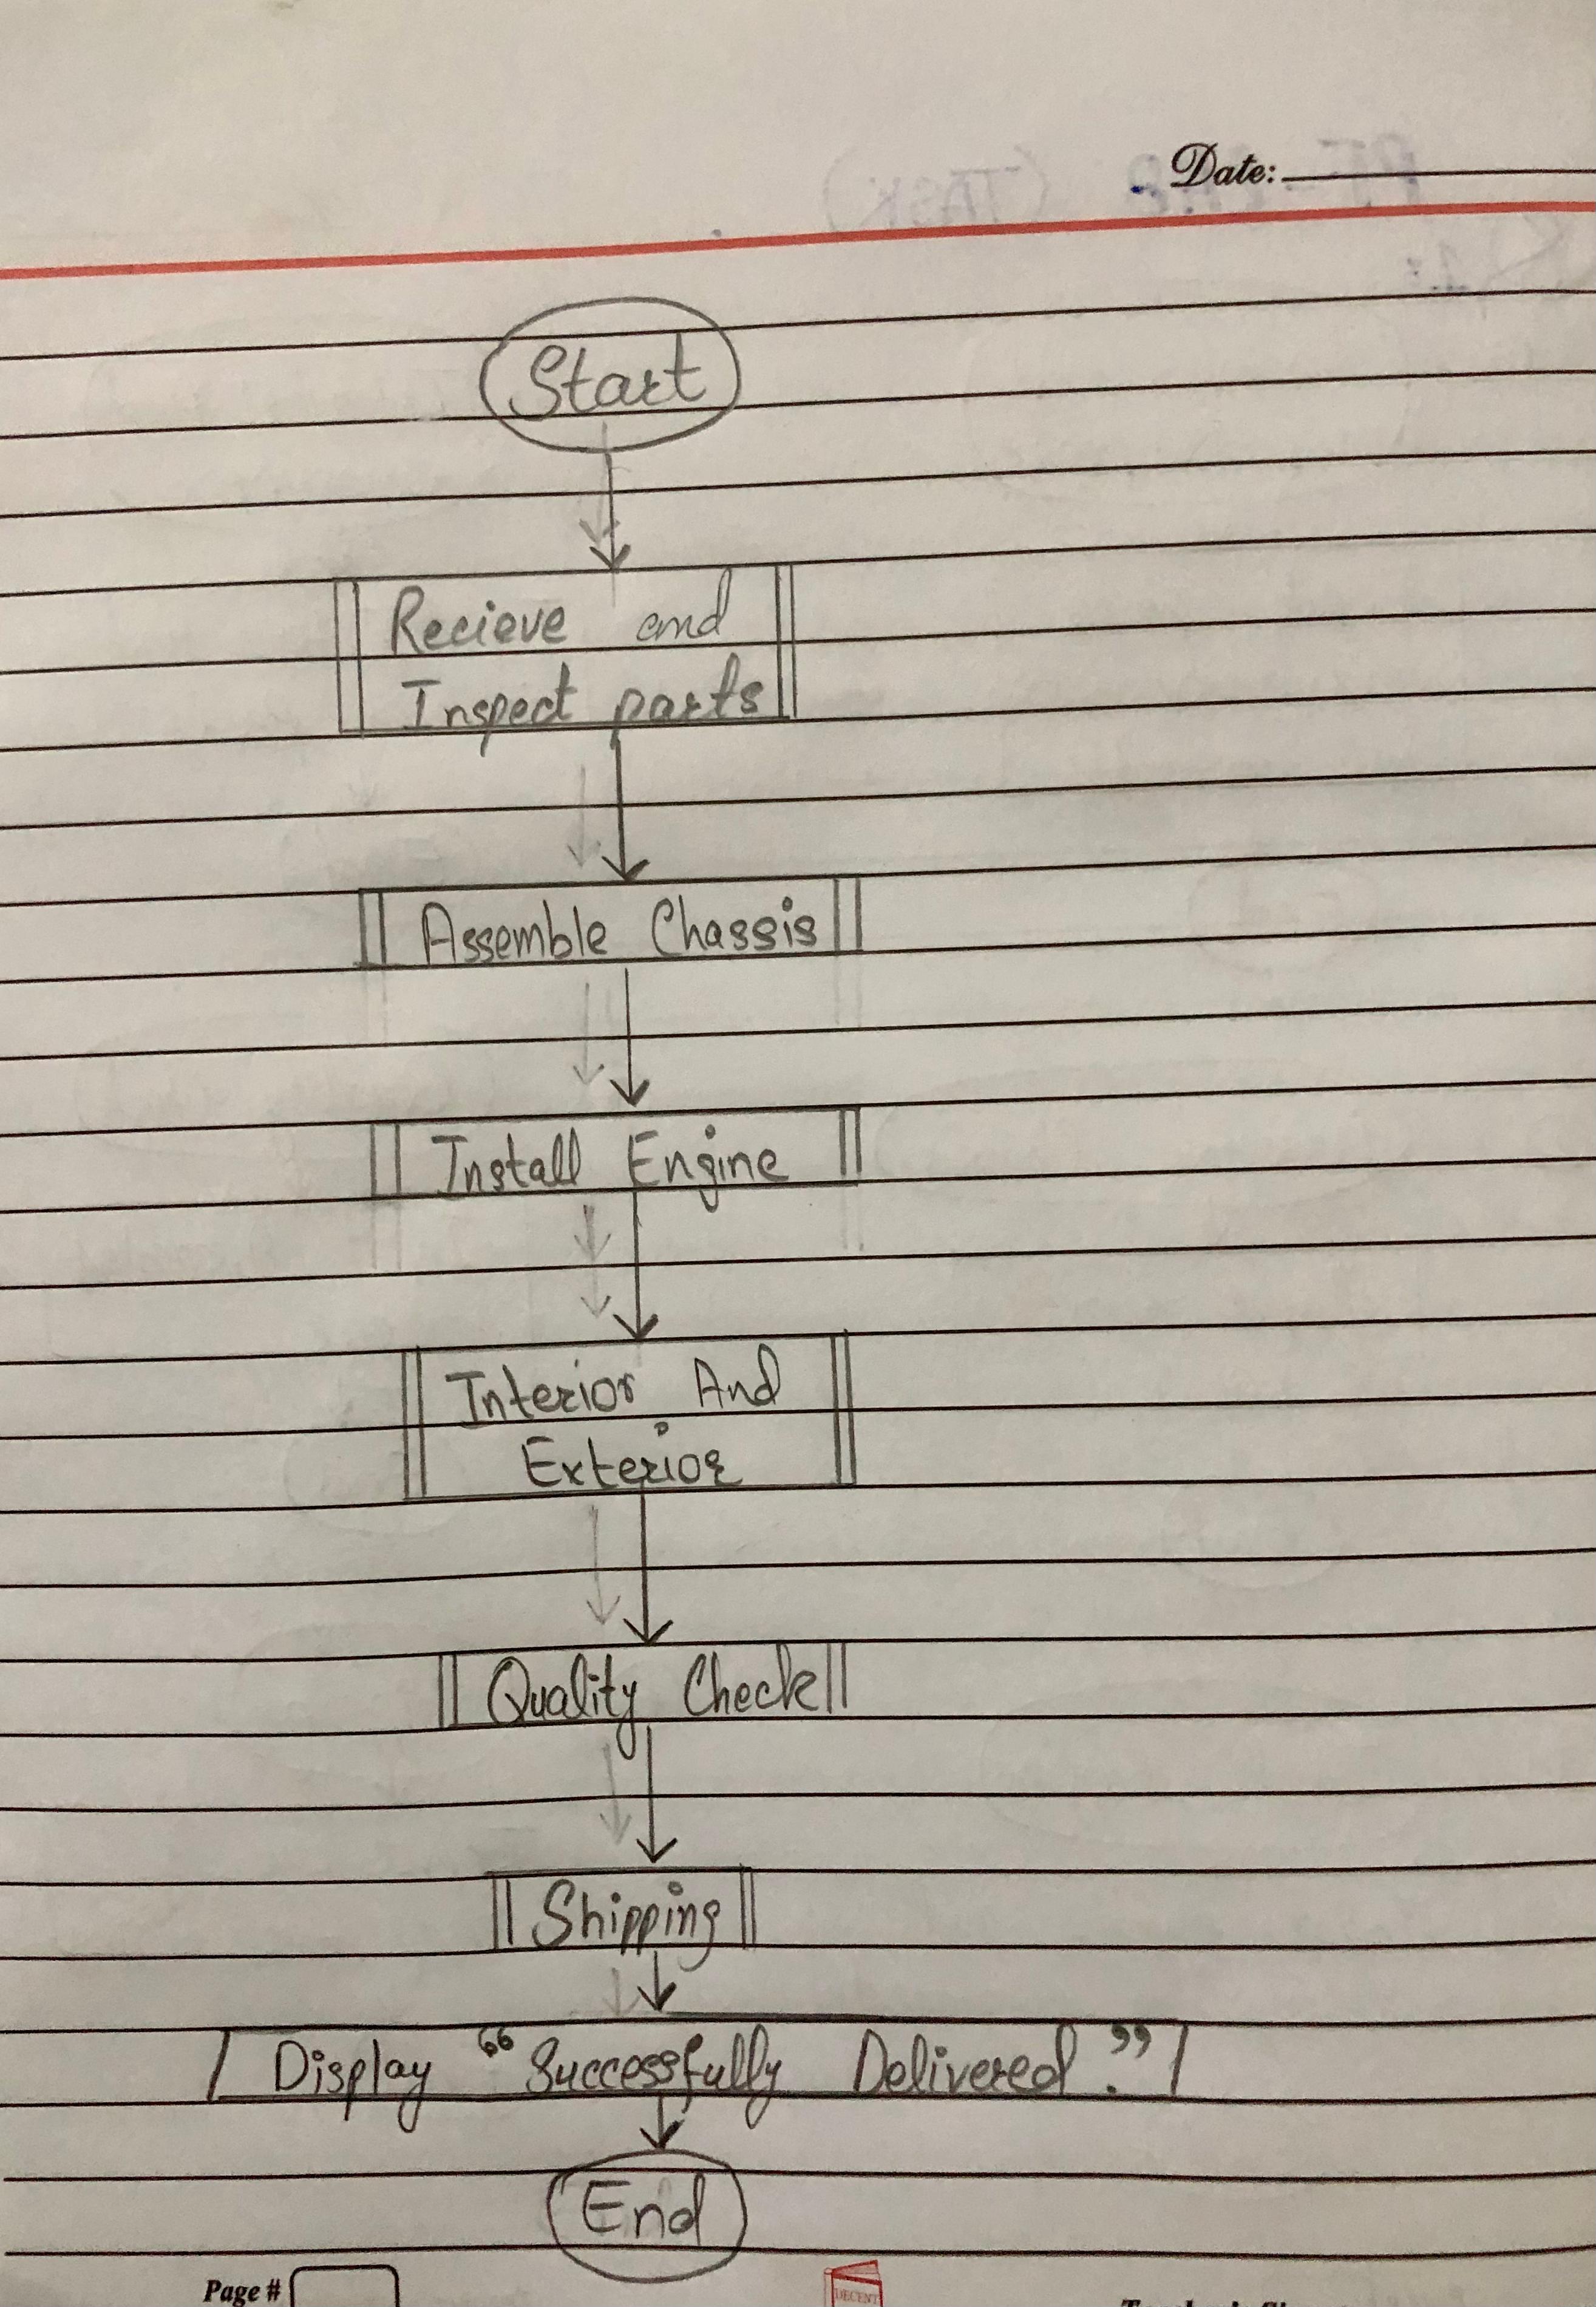 Date:
Start
Recieve and
Inspect parts
Assemble Chassis
Install Engine
Interior And
Exterior
Quality Check
Shipping
Display "Successfully Delivered."
End
Page #
DECENT